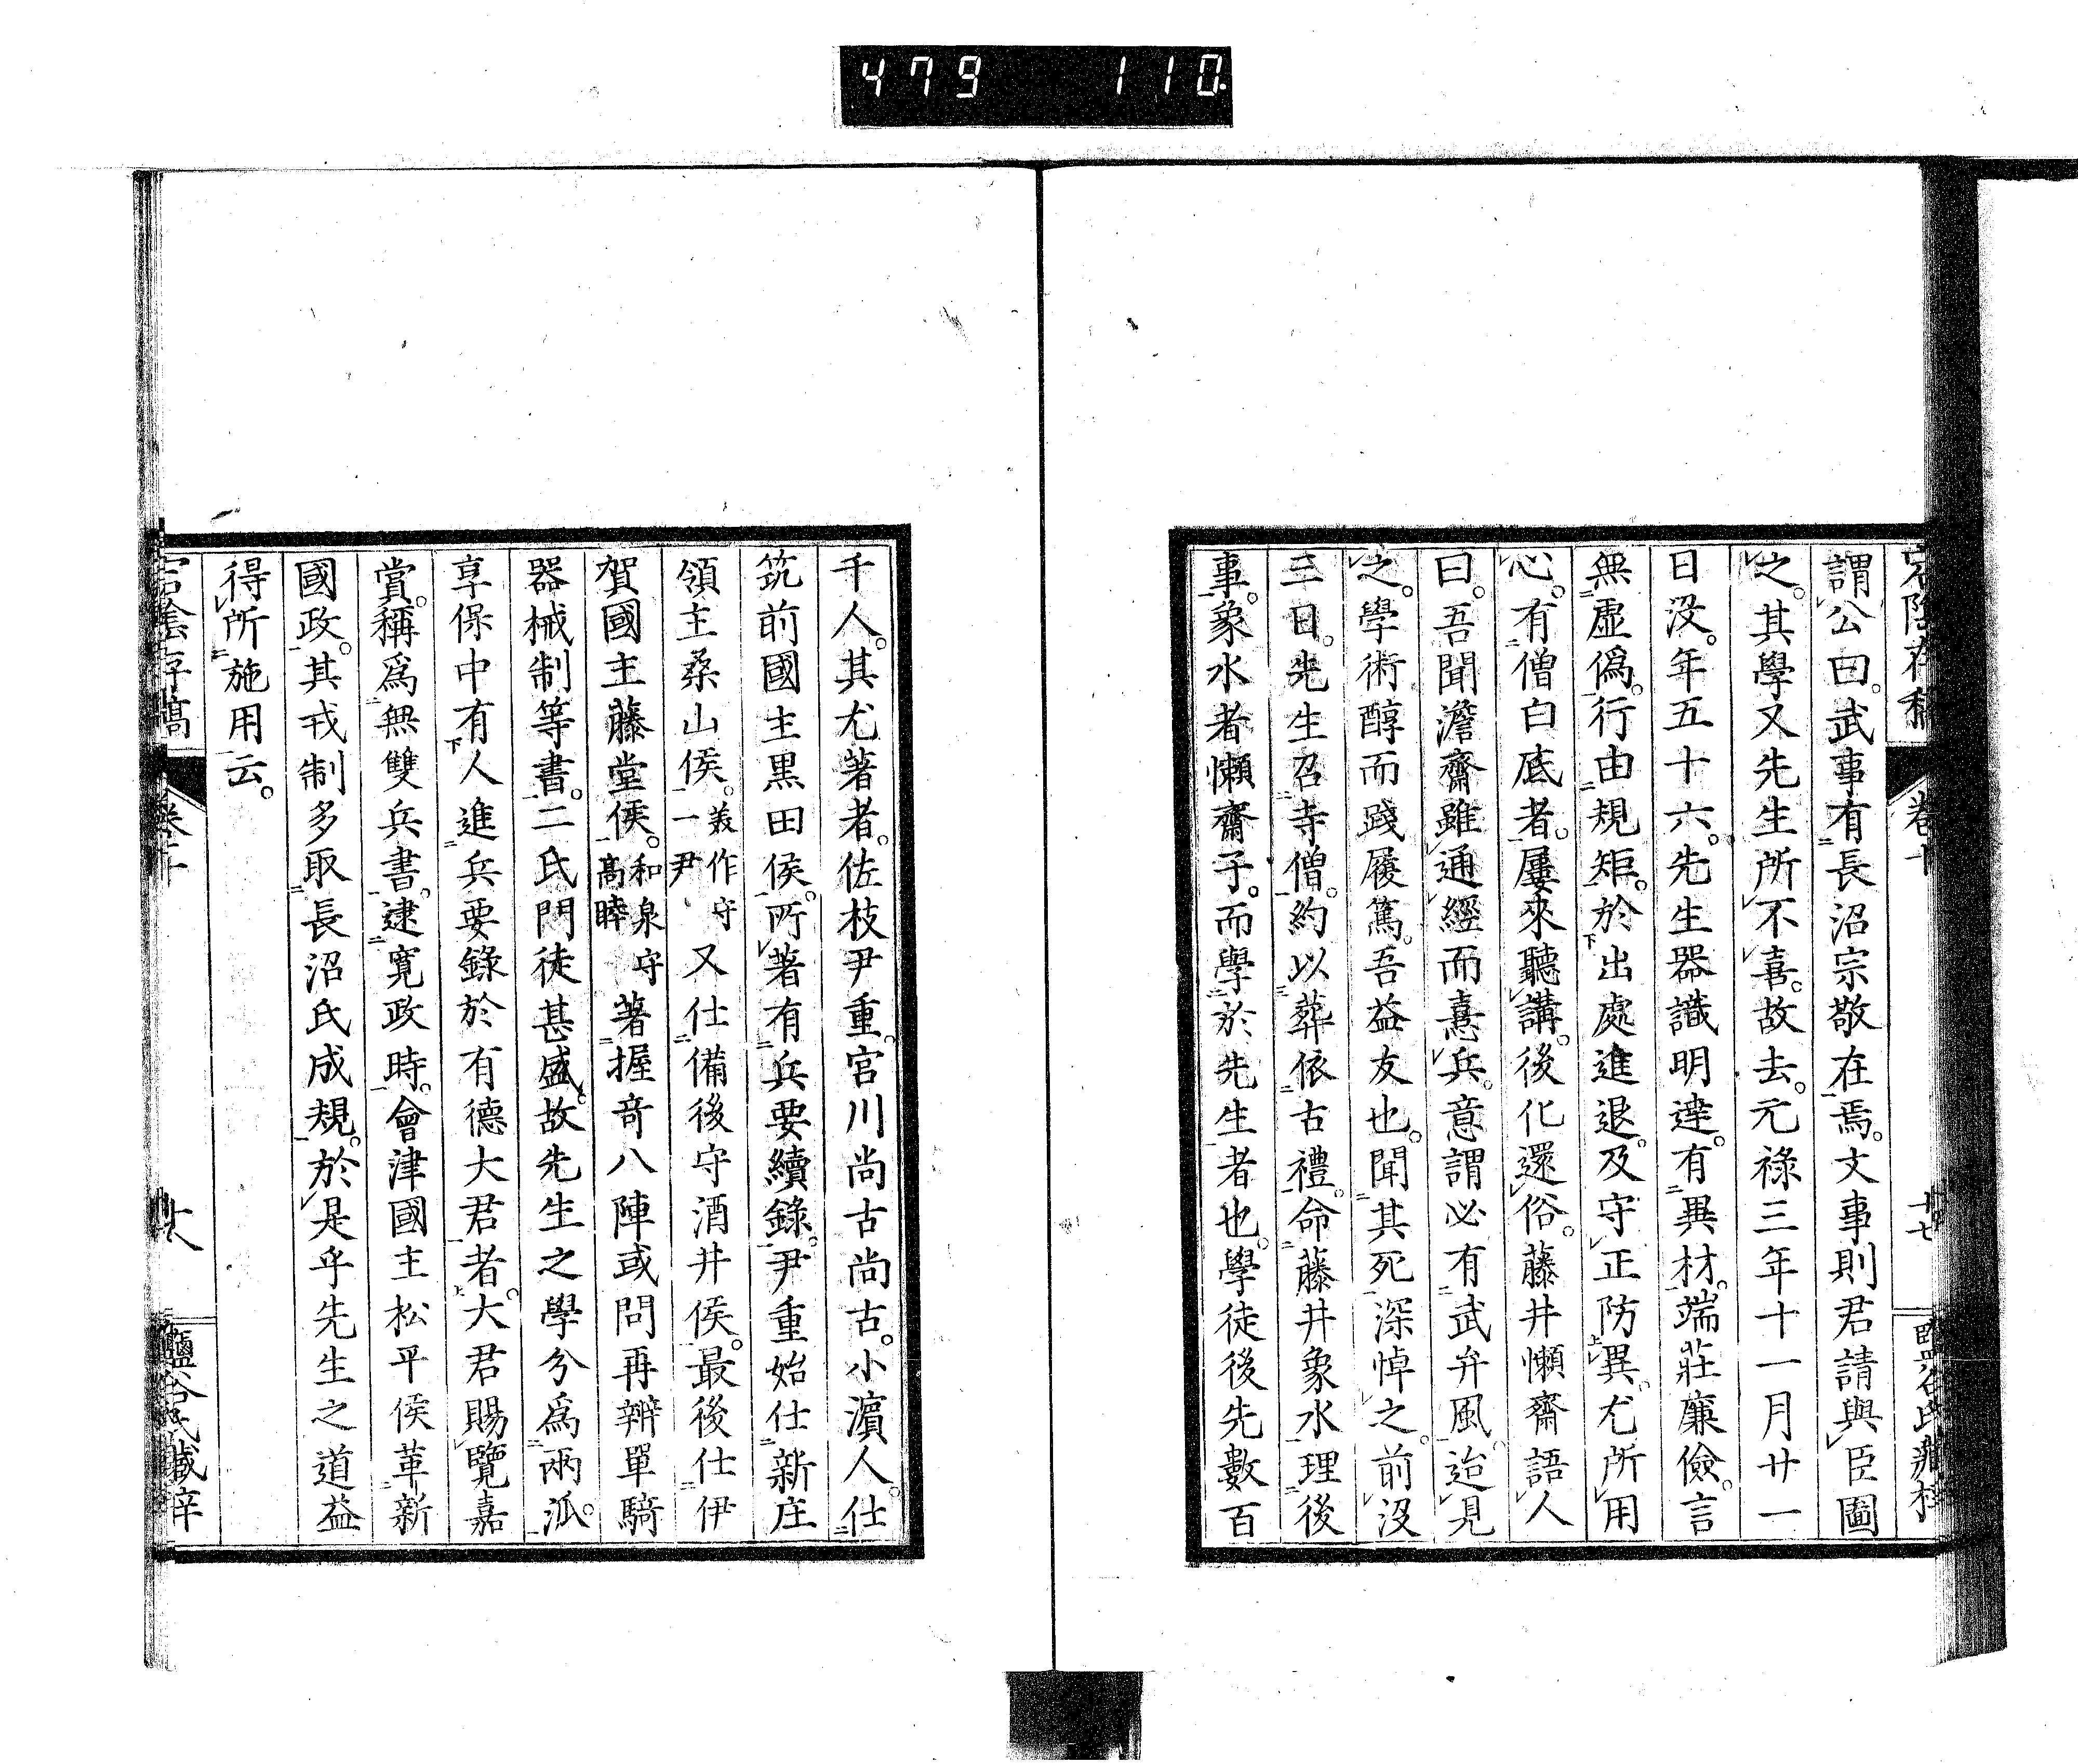 479 110
謂公曰。武事有長沼宗敬在焉。文事則君請與臣圖
之。其學又先生所不喜。故去。元祿三年十一月廿一
日没。年五十六。先生器識明達。有異材。端莊廉儉。言
無虛僞。行由規矩。於出處進退。及守正防異。尤所用
心。有僧白底者。屢來聽講。後化還俗。藤井懶齋語人
曰。吾聞澹齋雖通經而憙兵。意謂必有武弁風。迨見
之。學術醇而踐履篤。吾益友也。聞其死深悼之。前没
三日。先生召寺僧。約以葬依古禮。命藤井象水理後
事。象水者懶齋子。而學於先生者也。學徒後先數百
千人。其尤著者。佐枝尹重。宮川尚古尚古。小濵人。仕
筑前國主黒田侯。所著有兵要續錄。尹重始仕新庄
領主桑山侯。美作守一尹又仕備後守酒井侯。最後仕伊
賀國主藤堂侯。和泉守高睦著握奇八陣或問再辨單騎
器械制等書。二氏門徒甚盛。故先生之學分爲兩派。
享保中有人進兵要錄於有德大君者。大君賜覽嘉
賞。稱爲無雙兵書。逮寬政時。會津國主松平侯革新
國政。其戎制多取長沼氏成規。於是乎先生之道益
得所施用云。
宕陰存稿 卷十 十八